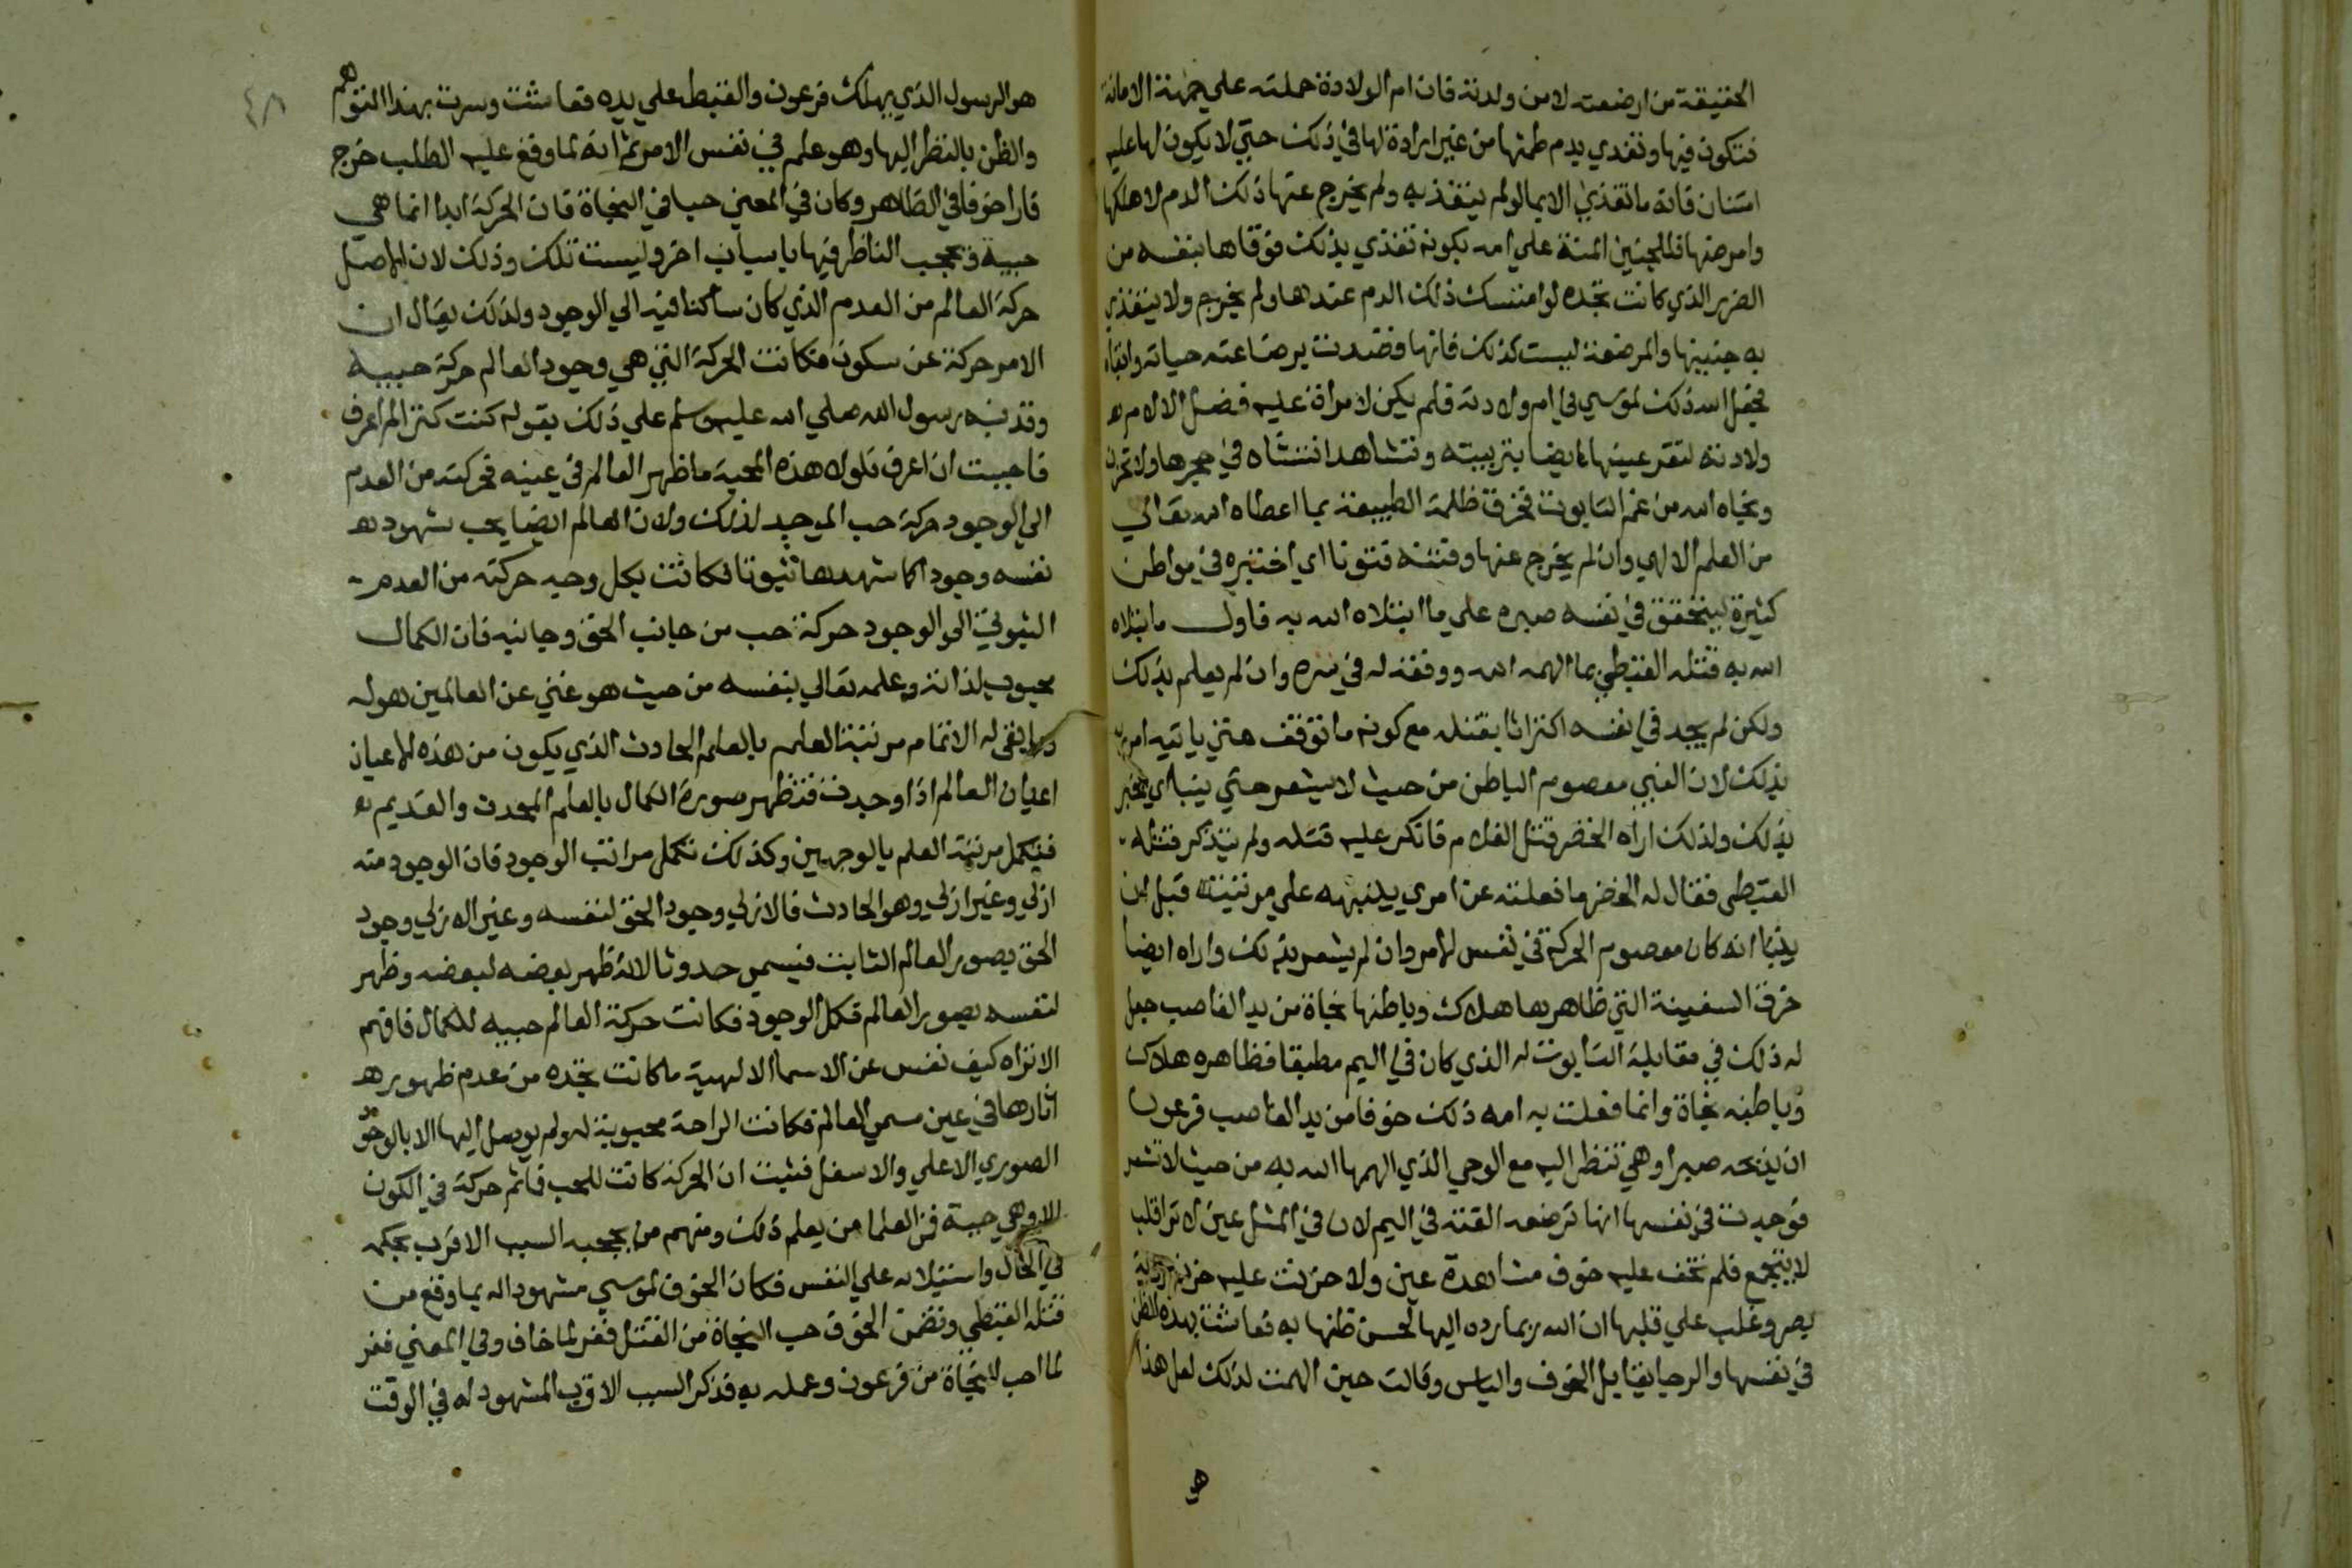 الحقيقة من ارضعته لا من ولدته فان ام الولادة حملته علي جهة الامانة
فتكون فيها وتغذي بدم طمثها من غير ارادة لها في ذلك حتي لا يكون لها عليه
امتنان فانه ما تغذي الا بما لو لم يتغذ به ولم يخرج عنها ذلك الدم لاهلكها
وامرضها فللجنين المنة علي امه بكونه تغذي بذلك فوقاها بنفسه من
الضرر الذي كانت تجده لو امتسك ذلك الدم عندها ولم يخرج ولا يتغذي
به جنينها والمرضعة ليست كذلك فانها قصدت برضاعته حياته وابقاه
فجعل الله ذلك لموسي في ام ولادته فلم يكن لامراة عليه فضل الا لام
ولادته لتقر عينها ايضا بتربيته وتشاهد انتشاه في حجرها ولا تحزن
ونجاه الله من غم التابوت فخرق ظلمة الطبيعة بما اعطاه الله تعالي
من العلم الالهي وان لم يخرج عنها وفتنه فتونا اي اختبره في مواطن
كثيرة ليتحقق في نفسه صبره علي ما ابتلاه الله به فاول ما ابتلاه
الله به قتله القبطي بما الهمه الله ووفقه له في سره وان لم يعلم بذلك
ولكن لم يجد في نفسه اكتراثا بقتله مع كونه ما توقف حتي ياتيه امر ربه
بذلك لان النبي معصوم الباطن من حيث لا يشعر حتي ينبا اي يخبر
بذلك ولذلك اراه الخضر قتل الغلام فانكر عليه قتله ولم يتذكر قتله
القبطي فقال له الخضر ما فعلته عن امري ينبهه علي مرتبته قبل ان
ينبا انه كان معصوم الحركة في نفس الامر وان لم يشعر بذلك واراه ايضا
خرق السفينة التي ظاهرها هلاك وباطنها نجاة من يد الغاصب جعل
له ذلك في مقابلة التابوت له الذي كان في اليم مطبقا فظاهره هلاك
وباطنه نجاة وانما فعلت به امه ذلك خوفا من يد الغاصب فرعون
ان يذبحه صبرا وهي تنظر اليه مع الوحي الذي الهمها الله به من حيث لا تشعر
فوجدت في نفسها انها ترضعه القته في اليم لان في المثل عين لا تر قلب
لا يتجع فلم تخف عليه خوف مشاهدة عين ولا حزنت عليه حزن رؤية
بصر وغلب علي قلبها ان الله ربما رده اليها لحسن ظنها به فعاشت بهذه الظن
في نفسها والرجا يقابل الخوف والياس وقالت حين الهمت لذلك لعل هذا
هو
٤٨
هو الرسول الذي يهلك فرعون والقبط علي يده فعاشت وسرت بهذا التوهم
والظن بالنظر اليها وهو علم في نفس الامر ثم انه لما وقع عليه الطلب خرج
فارا خوفا في الظاهر وكان في المعني حبا في النجاة فان الحركة ابدا انما هي
حبية ويحجب الناظر فيها باسباب اخر وليست تلك وذلك لان الاصل
حركة العالم من العدم الذي كان ساكنا فيه الي الوجود ولذلك يقال ان
الامر حركة عن سكون فكانت الحركة التي هي وجود العالم حركة حبيه
وقد نبه رسول الله صلي الله عليه وسلم علي ذلك بقوله كنت كنزا لم اعرف
فاحببت ان اعرف فلولا هذه المحبة ما ظهر العالم في عينه فحركته من العدم
الي الوجود حركة حب الموجد لذلك ولان العالم ايضا يحب شهود
نفسه وجودا كما شهدها ثبوتا فكانت بكل وجه حركته من العدم
الثبوتي الي الوجود حركة حب من جانب الحق وجانبه فان الكمال
محبوب لذاته وعلمه تعالي بنفسه من حيث هو غني عن العالمين هو له
وما بقي له الا تمام مرتبة العلم بالعلم الحادث الذي يكون من هذه الاعيان
اعيان العالم اذا وجدت فتظهر صورة الكمال بالعلم المحدث والقديم
فتكمل مرتبة العلم بالوجهين وكذلك تكمل مراتب الوجود فان الوجود منه
ازلي وغير ازلي وهو الحادث فالازلي وجود الحق لنفسه وغير الازلي وجود
الحق بصور العالم الثابت فيسمي حدوثا لانه ظهر بعضه لبعضه وظهر
لنفسه بصور العالم فكمل الوجود فكانت حركة العالم حبيه للكمال فافهم
الا تراه كيف نفس عن الاسما الالهية ما كانت تجده من عدم ظهور
اثارها في عين مسمي العالم فكانت الراحة محبوبة له ولم يوصل اليها الا بالوجود
الصوري الاعلي والاسفل فثبت ان الحركة كانت للحب فما ثم حركة في الكون
الا وهي حبية فمن العلما من يعلم ذلك ومنهم من يحجبه السبب الاقرب بحكمه
في الحال واستيلائه علي النفس فكان الخوف لموسي مشهودا له بما وقع من
قتله القبطي وتضمن الخوف حب النجاة من القتل ففر لما خاف وفي المعني ففر
لما احب النجاة من فرعون وعمله به فذكر السبب الاقرب المشهود له في الوقت